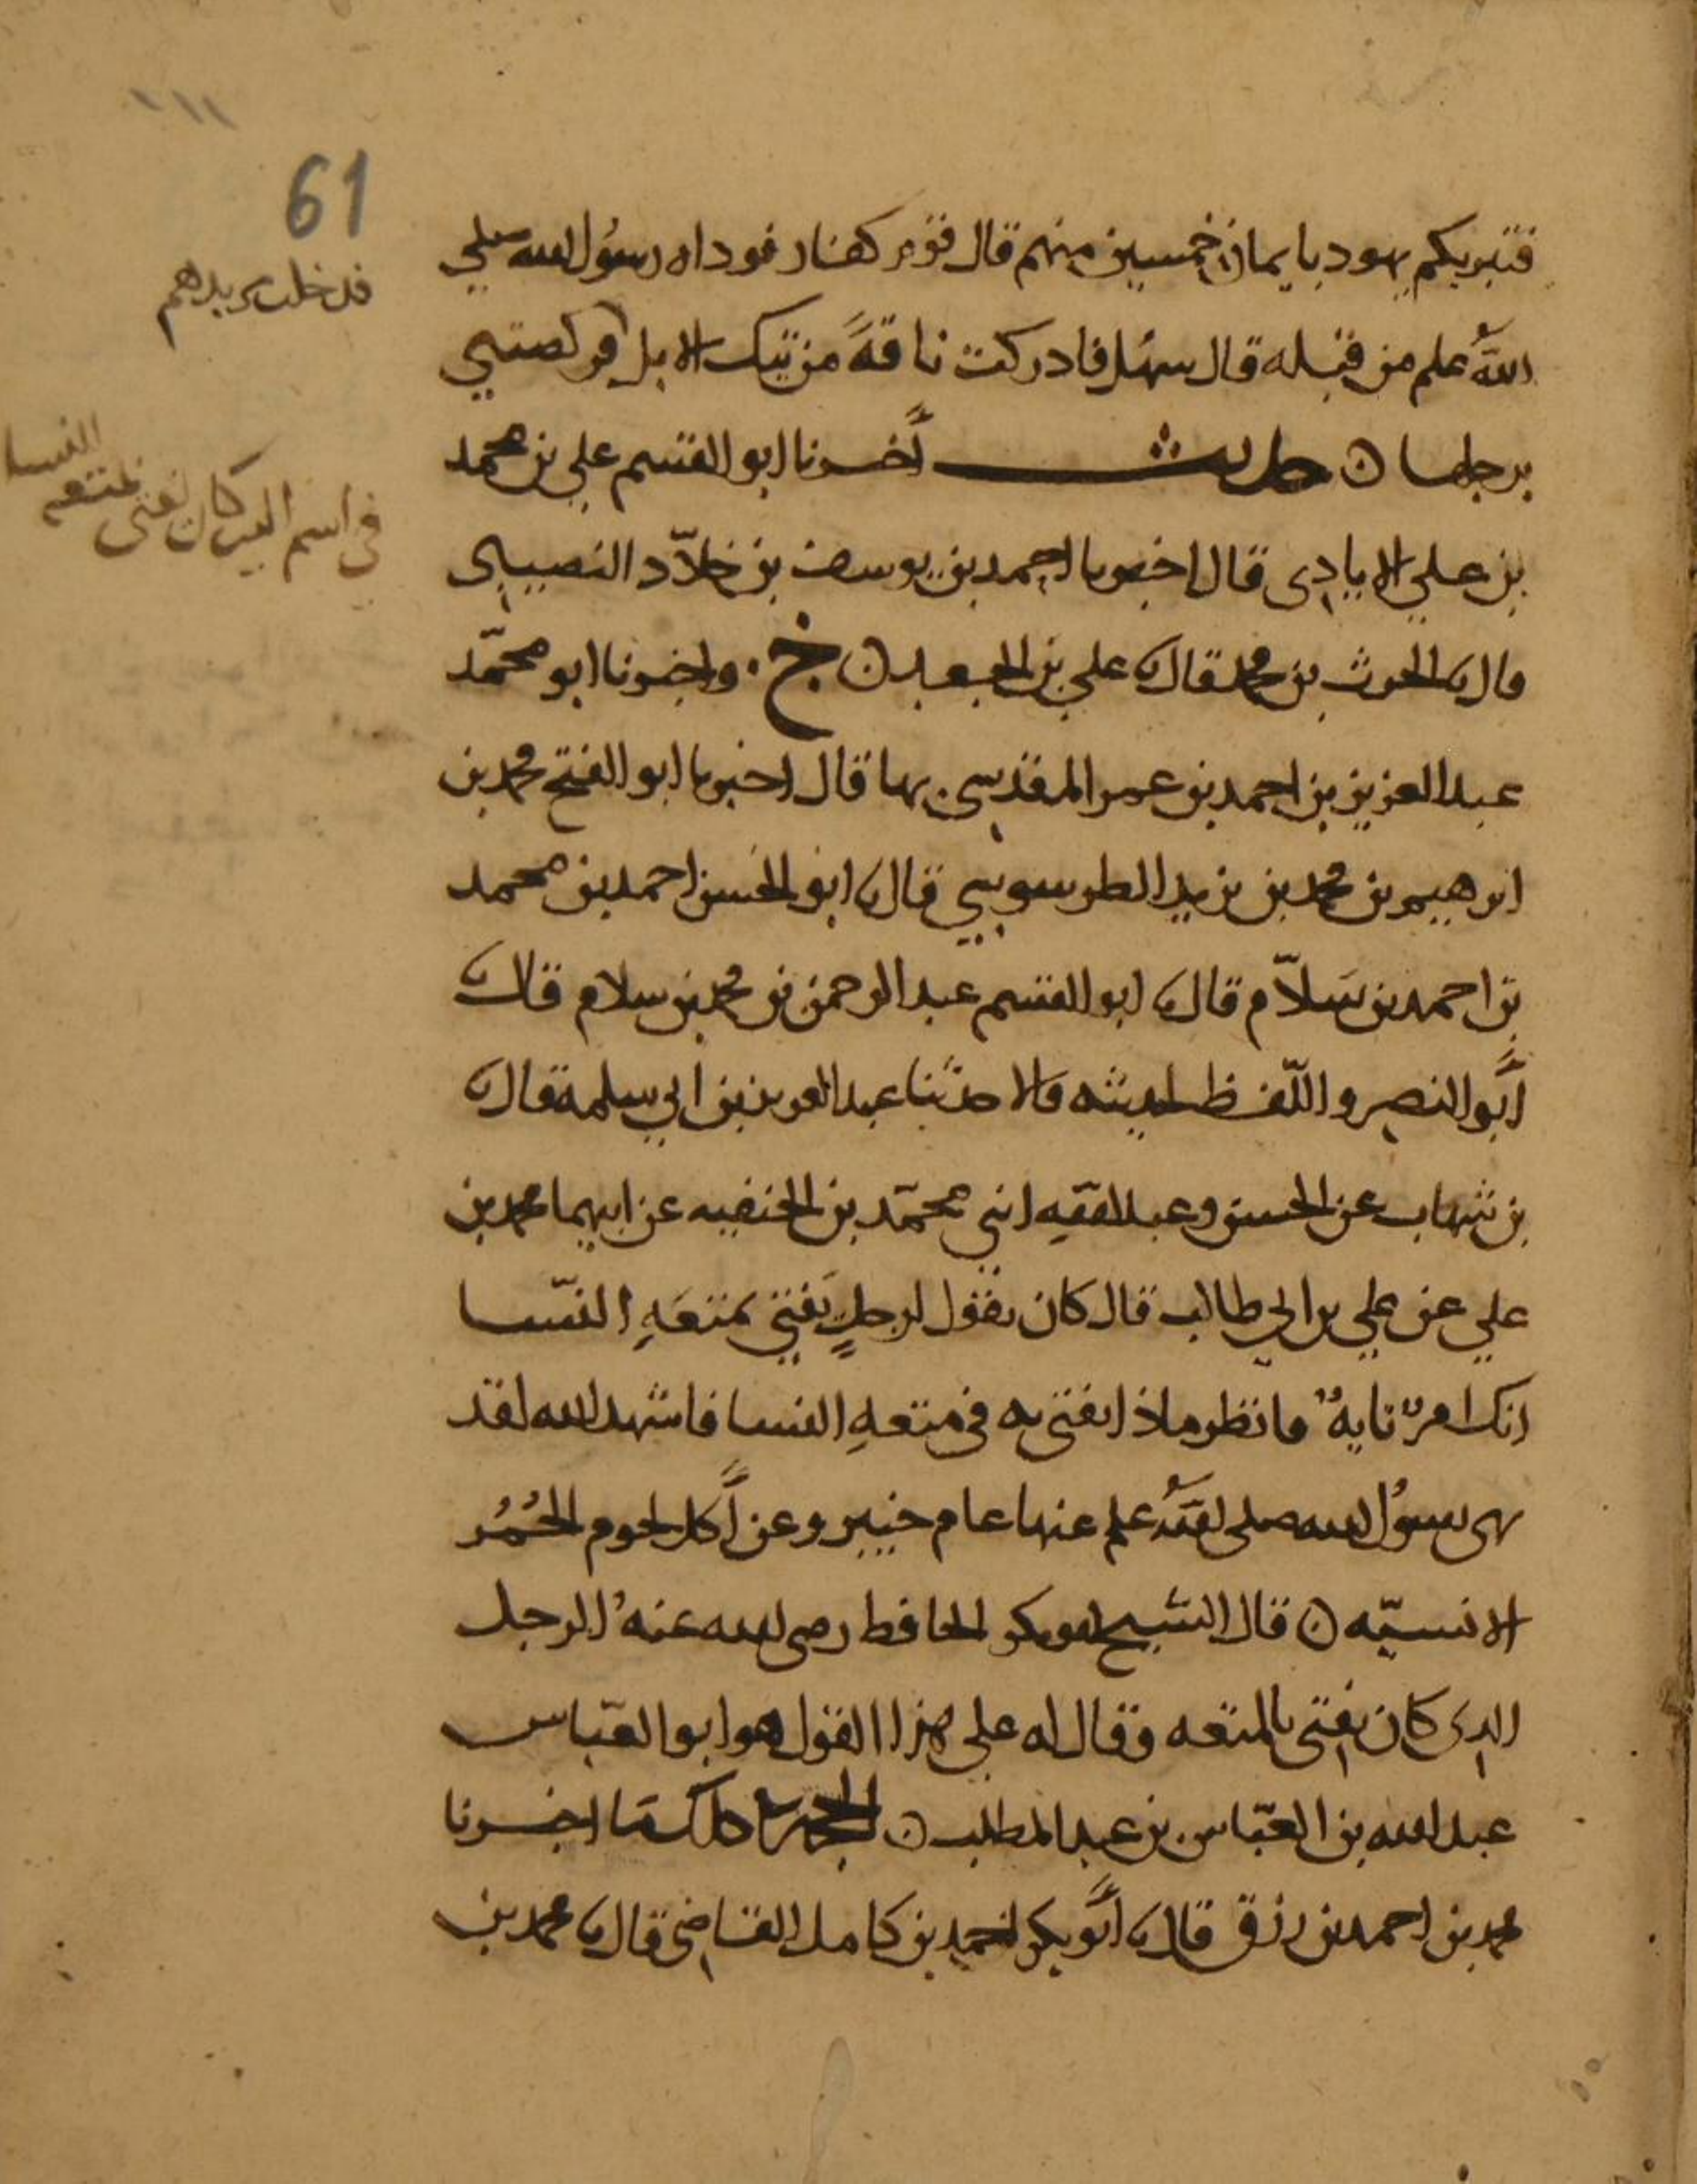 61
فدخلت مربدهم
فتبريكم يهود بايمان خمسين منهم قال قوم كفار فوداه رسول الله صلى
الله علم من قبله قال سهل فادركت ناقةً من تيك الابل فركضتني
برجلها ن حديث أخبرنا ابو القسم علي بن محمد
النسا
في اسم الذي كان يفتي بمتعه
بن علي الايادي قال اخبرنا احمد بن يوسف بن خلّاد النصيبي
قال نا الحرث بن محمد قال نا علي بن الجعد ن خ. واخبرنا ابو محمّد
عبد العزيز بن احمد بن عمر المقدسي بها قال اخبرنا ابو الفتح محمد بن
ابرهيم بن محمد بن يزيد الطرسوسي قال نا ابو الحسن احمد بن محمد
بن احمد بن سَلاّم قال نا ابو القسم عبد الرحمن بن محمد بن سلام قال نا
أبو النصر واللّفظ لحديثه قالا حدّثنا عبد العزيز بن ابي سلمة قال نا
بن شهاب عن الحسن وعبد اللهِ ابني محمّد بن الحنفيه عن ابيهما محمد بن
علي عن علي بن ابي طالب قال كان يقول لرجلٍ يَفتي بمتعَهِ النّسا
انك امرؤ تايهٌ فانظر ماذا يفتي به في متعهِ النسا فاشهد الله لقد
نهى رسولُ الله صلى اللهُ علم عنها عام خيبر وعن أكل لحوم الحُمُر
الانسيّه ن قال الشيخ ابو بكر الحافظ رضي الله عنهُ الرجل
الذي كان يفتي بالمتعه وقال له علي هذا القول هو ابو العبّاس
عبد الله بن العبّاس بن عبد المطلب ن الحجة في ذلك ما اخبرنا
محمد بن احمد بن رزق قال نا أبو بكر احمد بن كامل القاضي قال نا محمد بن